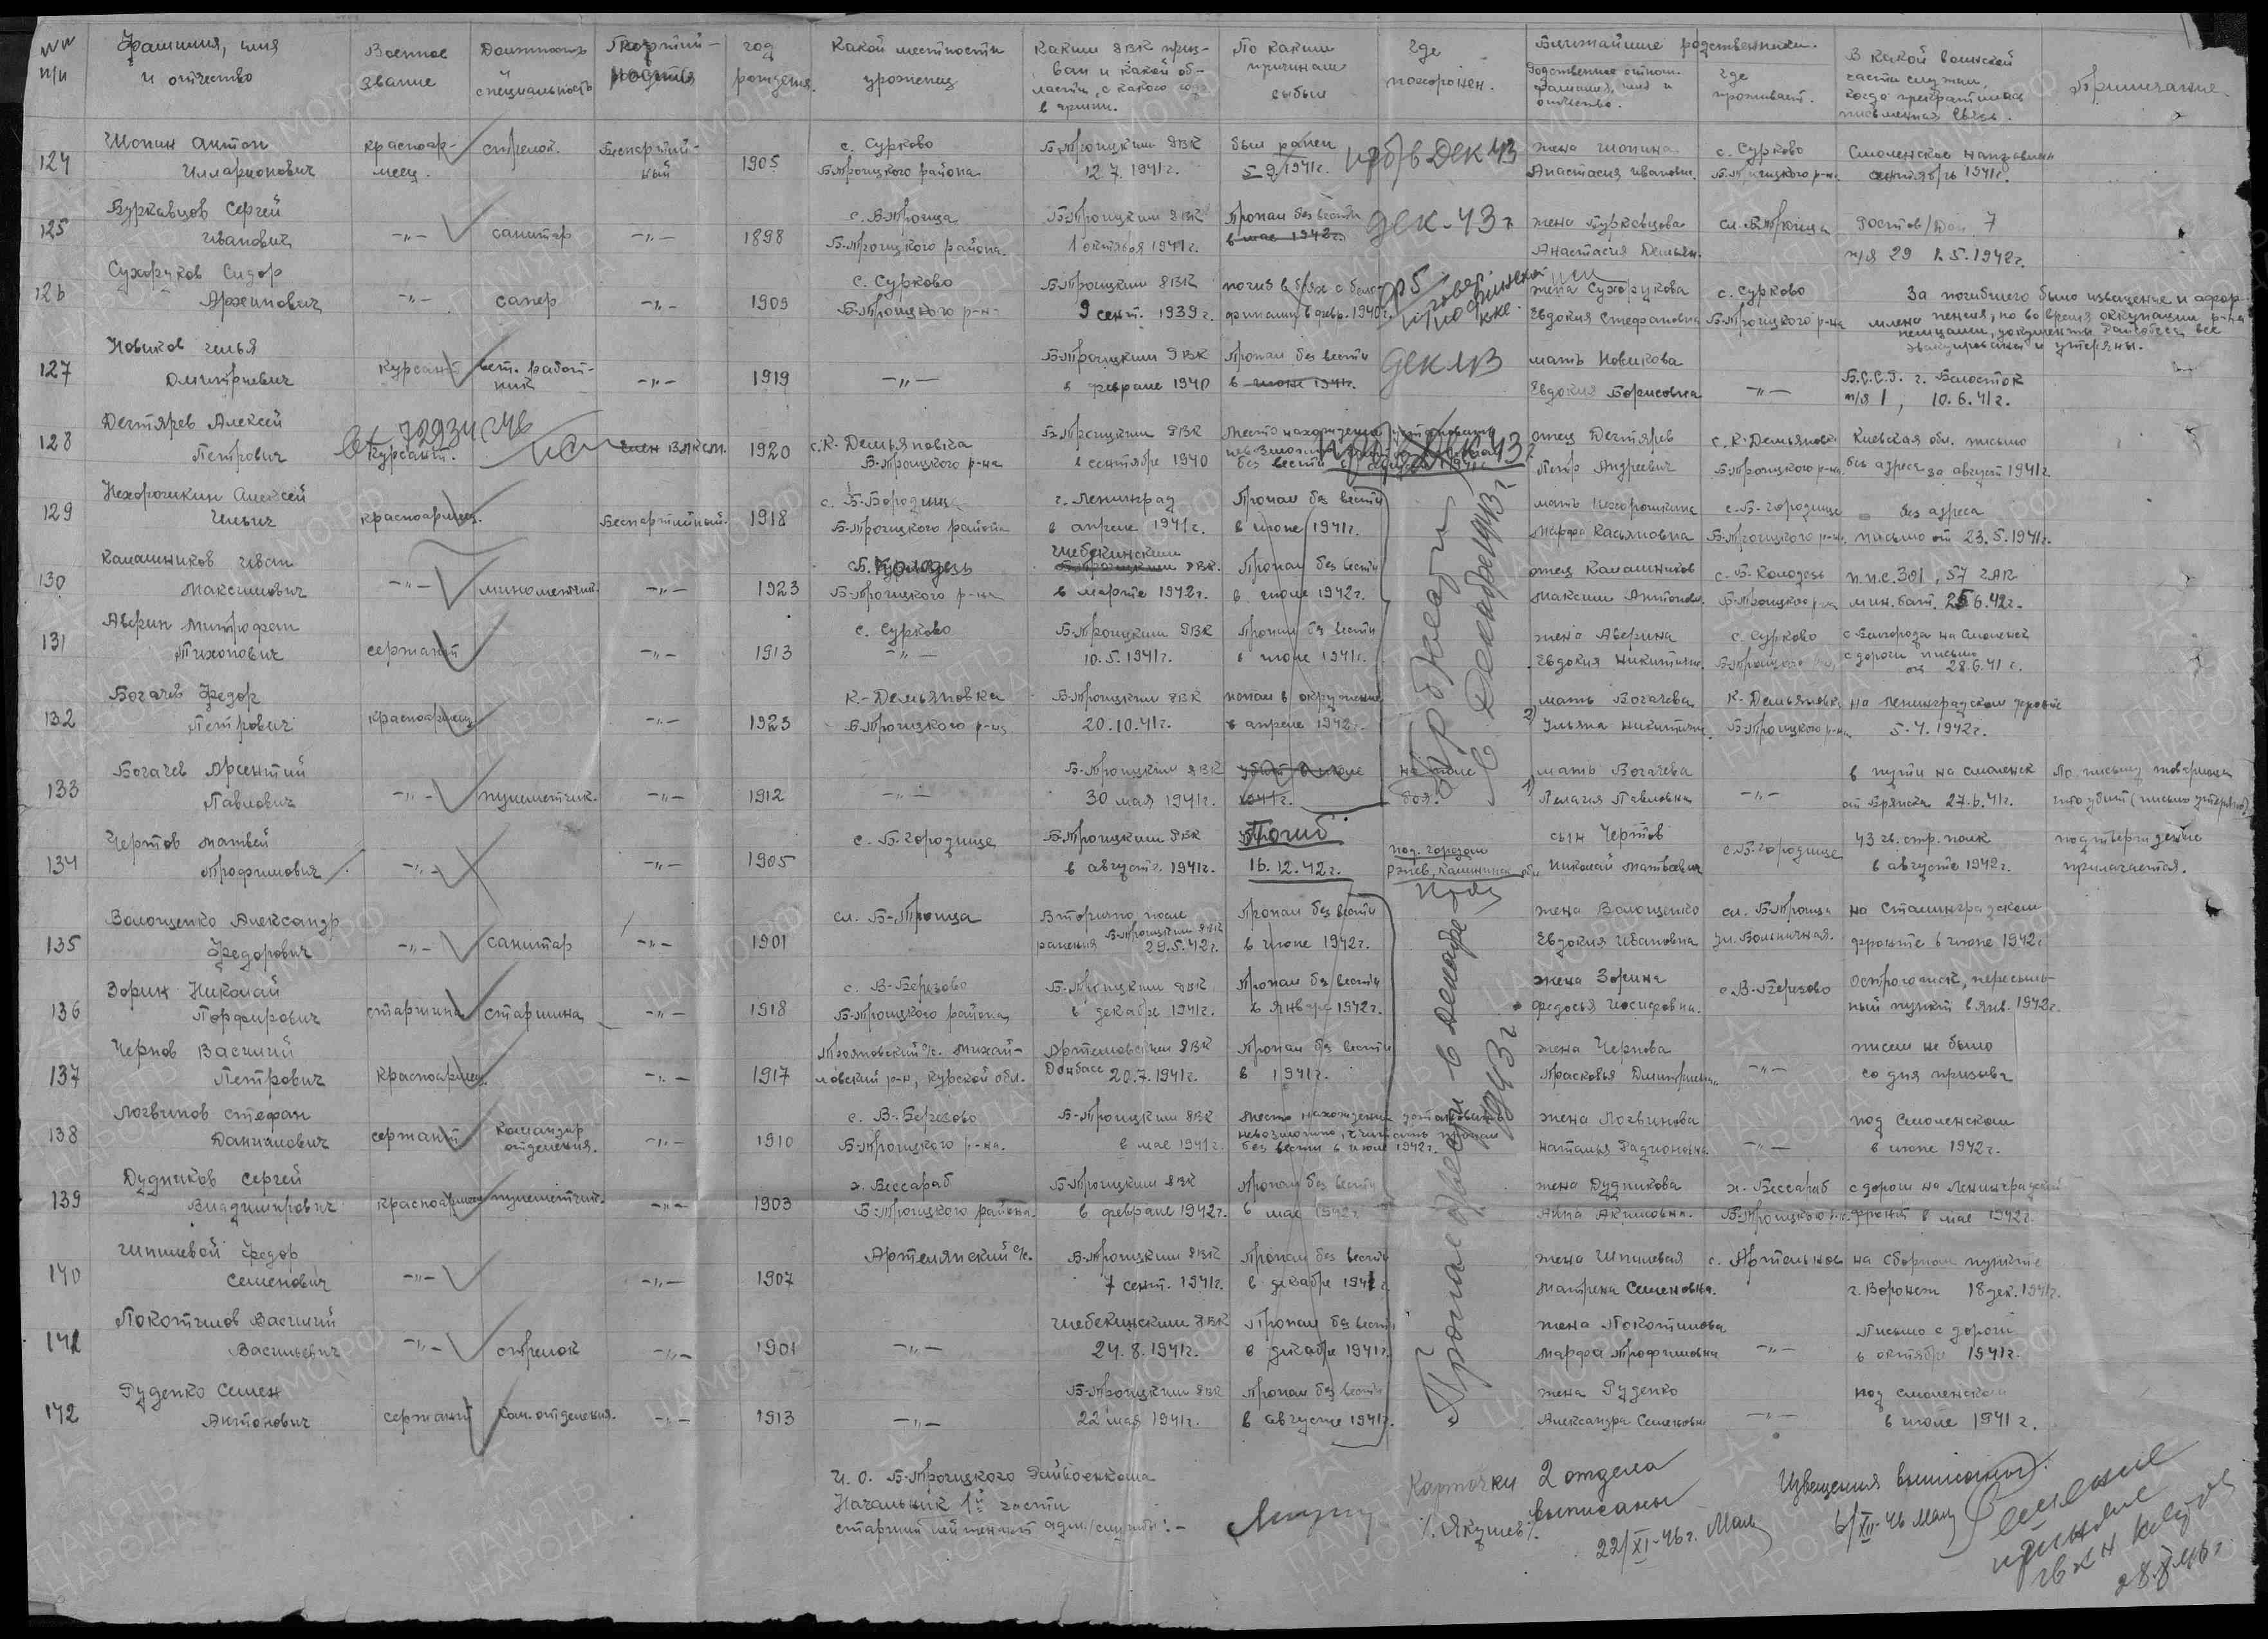 №№ п/п
Фамилия, имя и отчество
Военное звание
Должность и специальность
Партий-
год рождения.
Какой местности уроженец
Каким РВК приз-
ван и какой об-
ласти, с какого года
в армии.
По каким причинам выбыл
где похоронен.
Ближайшие родственники.
Родственное отнош.
фамилия, имя и
отчество.
где проживает.
В какой воинской
части служил,
когда прекратилась
письменная связь.
Примечание.
124 Шопин Антон Илларионович красноар-меец. стрелок. Беспартий-ный 1905 с. Сурково Б-Троицкого района Б-Троицким РВК 12.7.1941г. был ранен 5.9.1941г. пр б/в Дек 43 жена Шопина Анастасия Ивановн. с. Сурково Б-Троицкого р-на. Смоленское направлен сентябрь 1941г.
125 Бурковцов Сергей Иванович -"- санитар -"- 1898 с. Б-Троица Б-Троицкого района. Б-Троицким РВК 1 октября 1941г. Пропал без вести в мае 1942г. дек-43 г жена Бурковцова Анастасия Демьян. сл. Б-Троица Ростов/Дон 7 п/я 29 1.5.1942г.
126 Сухоруков Сидор Архипович -"- сапер -"- 1909 с. Сурково Б-Троицкого р-н- Б-Троицким РВК 9 сент. 1939г. погиб в боях с бело-финнами в февр. 1940г. жена Сухорукова Евдокия Стефановна с. Сурково Б-Троицкого р-на За погибшего было извещение и офор-
млена пенсия, но во время оккупации р-на
немцами, документы Райсобеса все
эвакуированы и утеряны.
127 Новиков Илья Дмитриевич Курсант вет. работ-ник -"- 1919 -"- Б-Троицким РВК в феврале 1940 Пропал без вести в июне 1941г. дек 43 мать Новикова Евдокия Борисовна -"- Б.С.С.Р. г. Белосток п/я 1, 10.6.41г.
128 Дегтярев Алексей Петрович Курсант. член ВЛКСМ. 1920 с. К-Демьяновка Б-Троицкого р-на Б-Троицким РВК в сентябре 1940 Место нахождения установить невозможно без вести 1941г. Дек 43 г отец Дегтярев Петр Андреевич с. К-Демьяновк. Б-Троицкого р-на. Киевская обл. письмо без адреса за август 1941г.
129 Нехорошкин Алексей Ильич красноармеец. Беспартийный. 1918 с. Б-Городище Б-Троицкого района г. Ленинград в апреле 1941г. Пропал без вести в июне 1941г. мать Нехорошкина Марфа Касьяновна с. Б-Городище Б-Троицкого р-на. без адреса письмо от 23.5.1941г.
130 Калашников Иван Максимович -"- минометчик. -"- 1923 Б. Колодезь Б-Троицкого р-на Шебекинским РВК. в марте 1942г. Пропал без вести в июле 1942г. отец Калашников Максим Антонов. с. Б-Колодезь Б-Троицкого р-на п.п.с. 301, 57 мин. бат. 25.6.42г.
131 Аверин Митрофан Тихонович сержант -"- 1913 с. Сурково -"- Б-Троицким РВК 10.5.1941г. Пропал без вести в июле 1941г. жена Аверина Евдокия Никитичн. с. Сурково Б-Троицкого с Белгорода на Смоленск с дороги письмо от 28.6.41г.
132 Богачев Федор Петрович красноармеец -"- 1923 К-Демьяновка Б-Троицкого р-на Б-Троицким РВК 20.10.41г. попал в окружение в апреле 1942г. мать Богачева Ульяна Никитичн. К-Демьяновка Б-Троицкого р-на на Ленинградском фронте 5.4.1942г.
133 Богачев Арсентий Павлович -"- пулеметчик. -"- 1912 -"- Б-Троицким РВК 30 мая 1941г. убит в июле 1941г. на поле боя. мать Богачева Пелагия Павловна -"- в пути на Смоленск от Брянска 27.6.41г. По письму товарища что убит (письмо утеряно)
134 Чертов Матвей Трофимович -"- -"- 1905 с. Б-Городище Б-Троицким РВК в август. 1941г. Погиб 16.12.42г. под городом Ржев, Калининск. обл. сын Чертов Николай Матвеевич с. Б-Городище 43 гв. стр. полк в августе 1942г. подтверждение прилагается.
135 Волощенко Александр Федорович -"- санитар -"- 1901 сл. Б-Троица Вторично после ранения Б-Троицким РВК 29.5.42г. Пропал без вести в июле 1942г. жена Волощенко Евдокия Ивановна сл. Б-Троица ул. Больничная. на Сталинградском фронте в июле 1942г
136 Зорин Николай Порфирович старшина старшина -"- 1918 с. В-Березово Б-Троицкого района Б-Троицким РВК в декабре 1941г. Пропал без вести в январе 1942г. жена Зорина Федосья Иосифовна. с. В-Березово Острогожск, пересыль-ный пункт в янв. 1942г.
137 Чернов Василий Петрович красноармеец. -"- 1917 Трояновский с/с. Михай-ловский р-н, Курской обл. Артемовским РВК Донбасс 20.7.1941г. Пропал без вести в 1941г. жена Чернова Прасковья Дмитриевн. -"- писем не было со дня призыва
138 Логвинов Стефан Данилович сержант Командир отделения. -"- 1910 с. В-Березово Б-Троицкого р-на. Б-Троицким РВК в мае 1941г. Место нахождения установить невозможно, считать пропал без вести в июле 1942г. жена Логвинова Наталья Родионовна. -"- под Смоленском в июле 1942г.
139 Дудников Сергей Владимирович красноармеец пулеметчик. -"- 1903 х. Бессараб Б-Троицкого района. Б-Троицким РВК в феврале 1942г. Пропал без вести в мае 1942г жена Дудникова Анна Акимовна. х. Бессараб Б-Троицкого р-н. с дороги на Ленинградский фронт в мае 1942г.
140 Шпилевой Федор Семенович -"- -"- 1907 Артелянский с/с. Б-Троицким РВК 7 сент. 1941г. Пропал без вести в декабре 1941г жена Шпилевая Матрена Семеновна. с. на сборном пункте г. Воронеж 18 дек. 1941г.
141 Покотилов Василий Васильевич -"- стрелок -"- 1901 -"- Шебекинским РВК 24.8.1941г. Пропал без вести в декабре 1941г. жена Покотилова Марфа Трофимовна -"- Письмо с дороги в октябре 1941г.
142 Руденко Семен Антонович сержант Ком. отделения. -"- 1913 -"- Б-Троицким РВК 22 мая 1941г. Пропал без вести в августе 1941г. жена Руденко Александра Семеновн -"- под Смоленском в июле 1941г.
Пропал без вести в декабре 1943 г
И. О. Б-Троицкого Райвоенкома
Начальник 1й части
старший лейтенант адм/службы: -
/Якушев/
Карточки 2 отдела
выписаны
22/XI-46г.
Извещения выписаны
6/XII-46
28.8.46г.
ПАМЯТЬ НАРОДА
ЦАМО.РФ